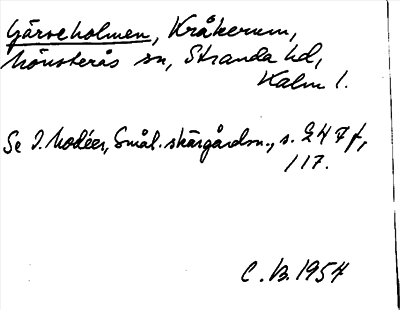 Gärveholmen, Kråkerum,
Mönsterås sn, Stranda hd,
Kalm l.
Se I. Modéer, Smål. skärgårdsn., s. 247 f,
117.
C. B. 1954